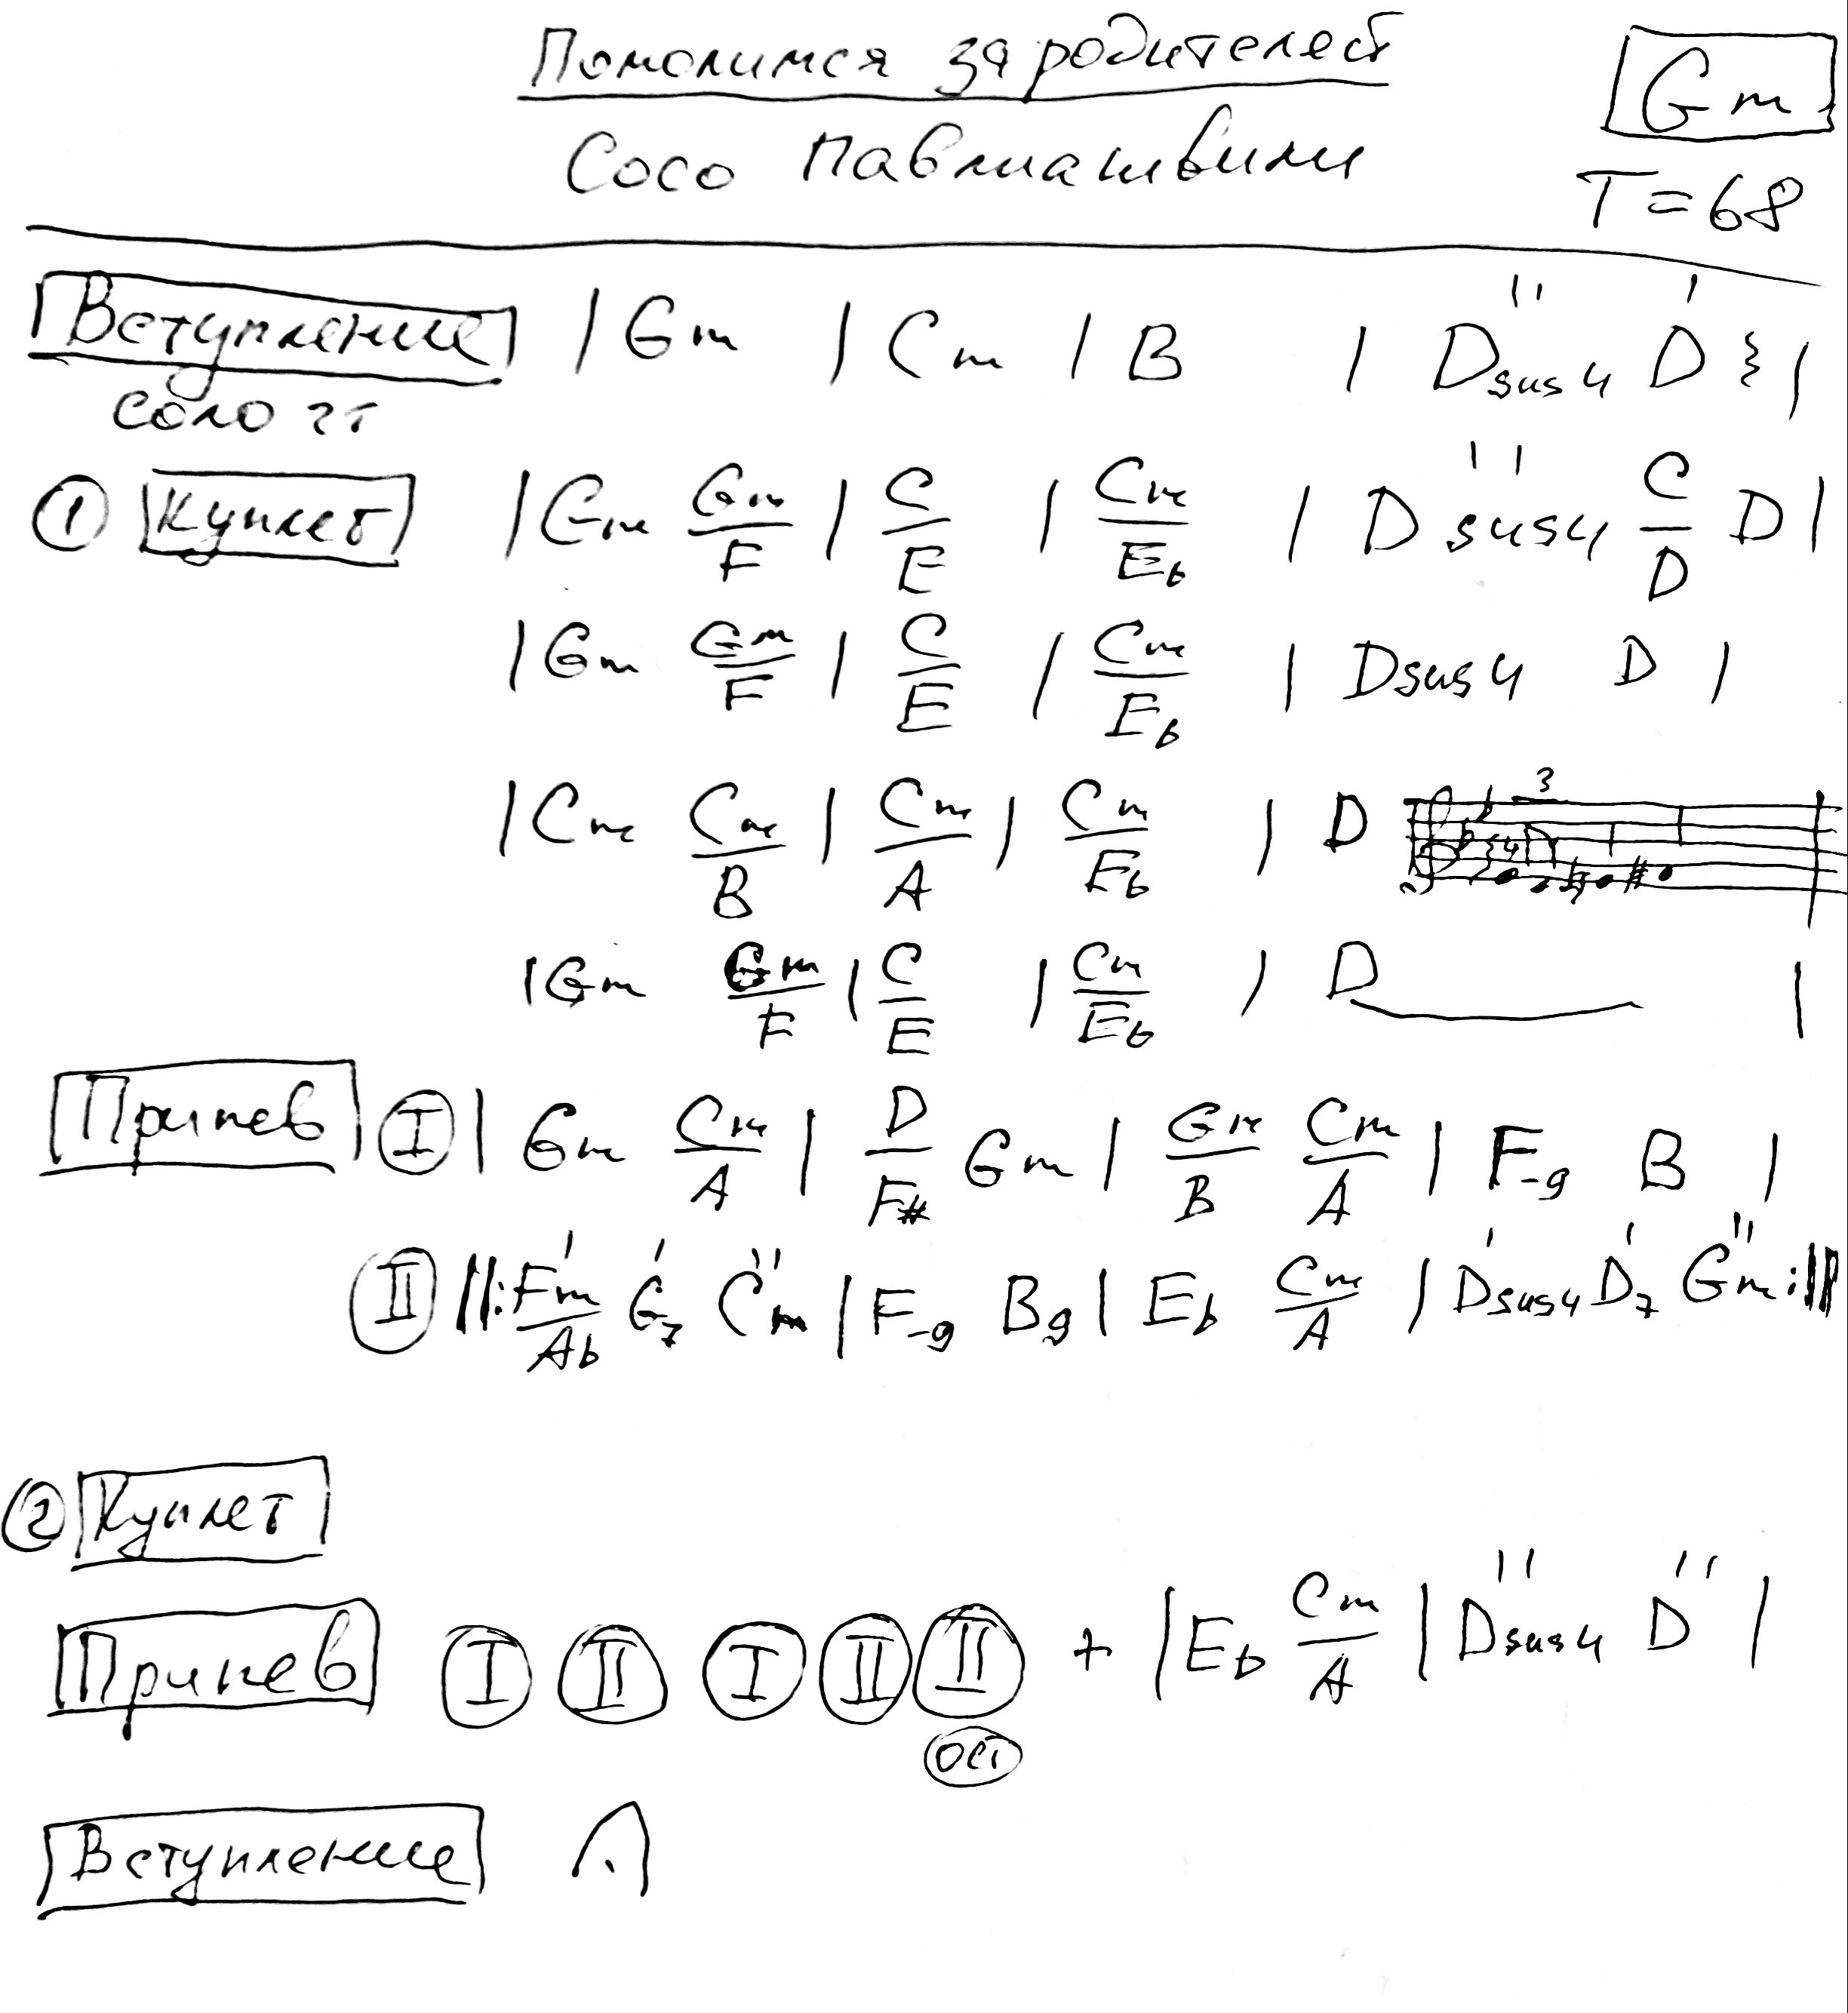 Помолимся за родителей
Gm
Сосо Павлиашвили
T=68
Вступление | Gm | Cm | B | Dsus4 D |
соло гт
① Куплет | Gm Gm/F | C/E | Cm/Eb | Dsus4 C/D D |
| Gm Gm/F | C/E | Cm/Eb | Dsus4 D |
| Cm Cm/B | Cm/A | Cm/Eb | D 3
| Gm Gm/F | C/E | Cm/Eb | D |
Припев Ⓘ | Gm Cm/A | D/F# Gm | Gm/B Cm/A | F-9 B |
II ||: Fm/Ab G7 Cm | F-9 B9 | Eb Cm/A | Dsus4 D7 Gm :||
② Куплет
Припев I II I II II + | Eb Cm/A | Dsus4 D |
ост
Вступление